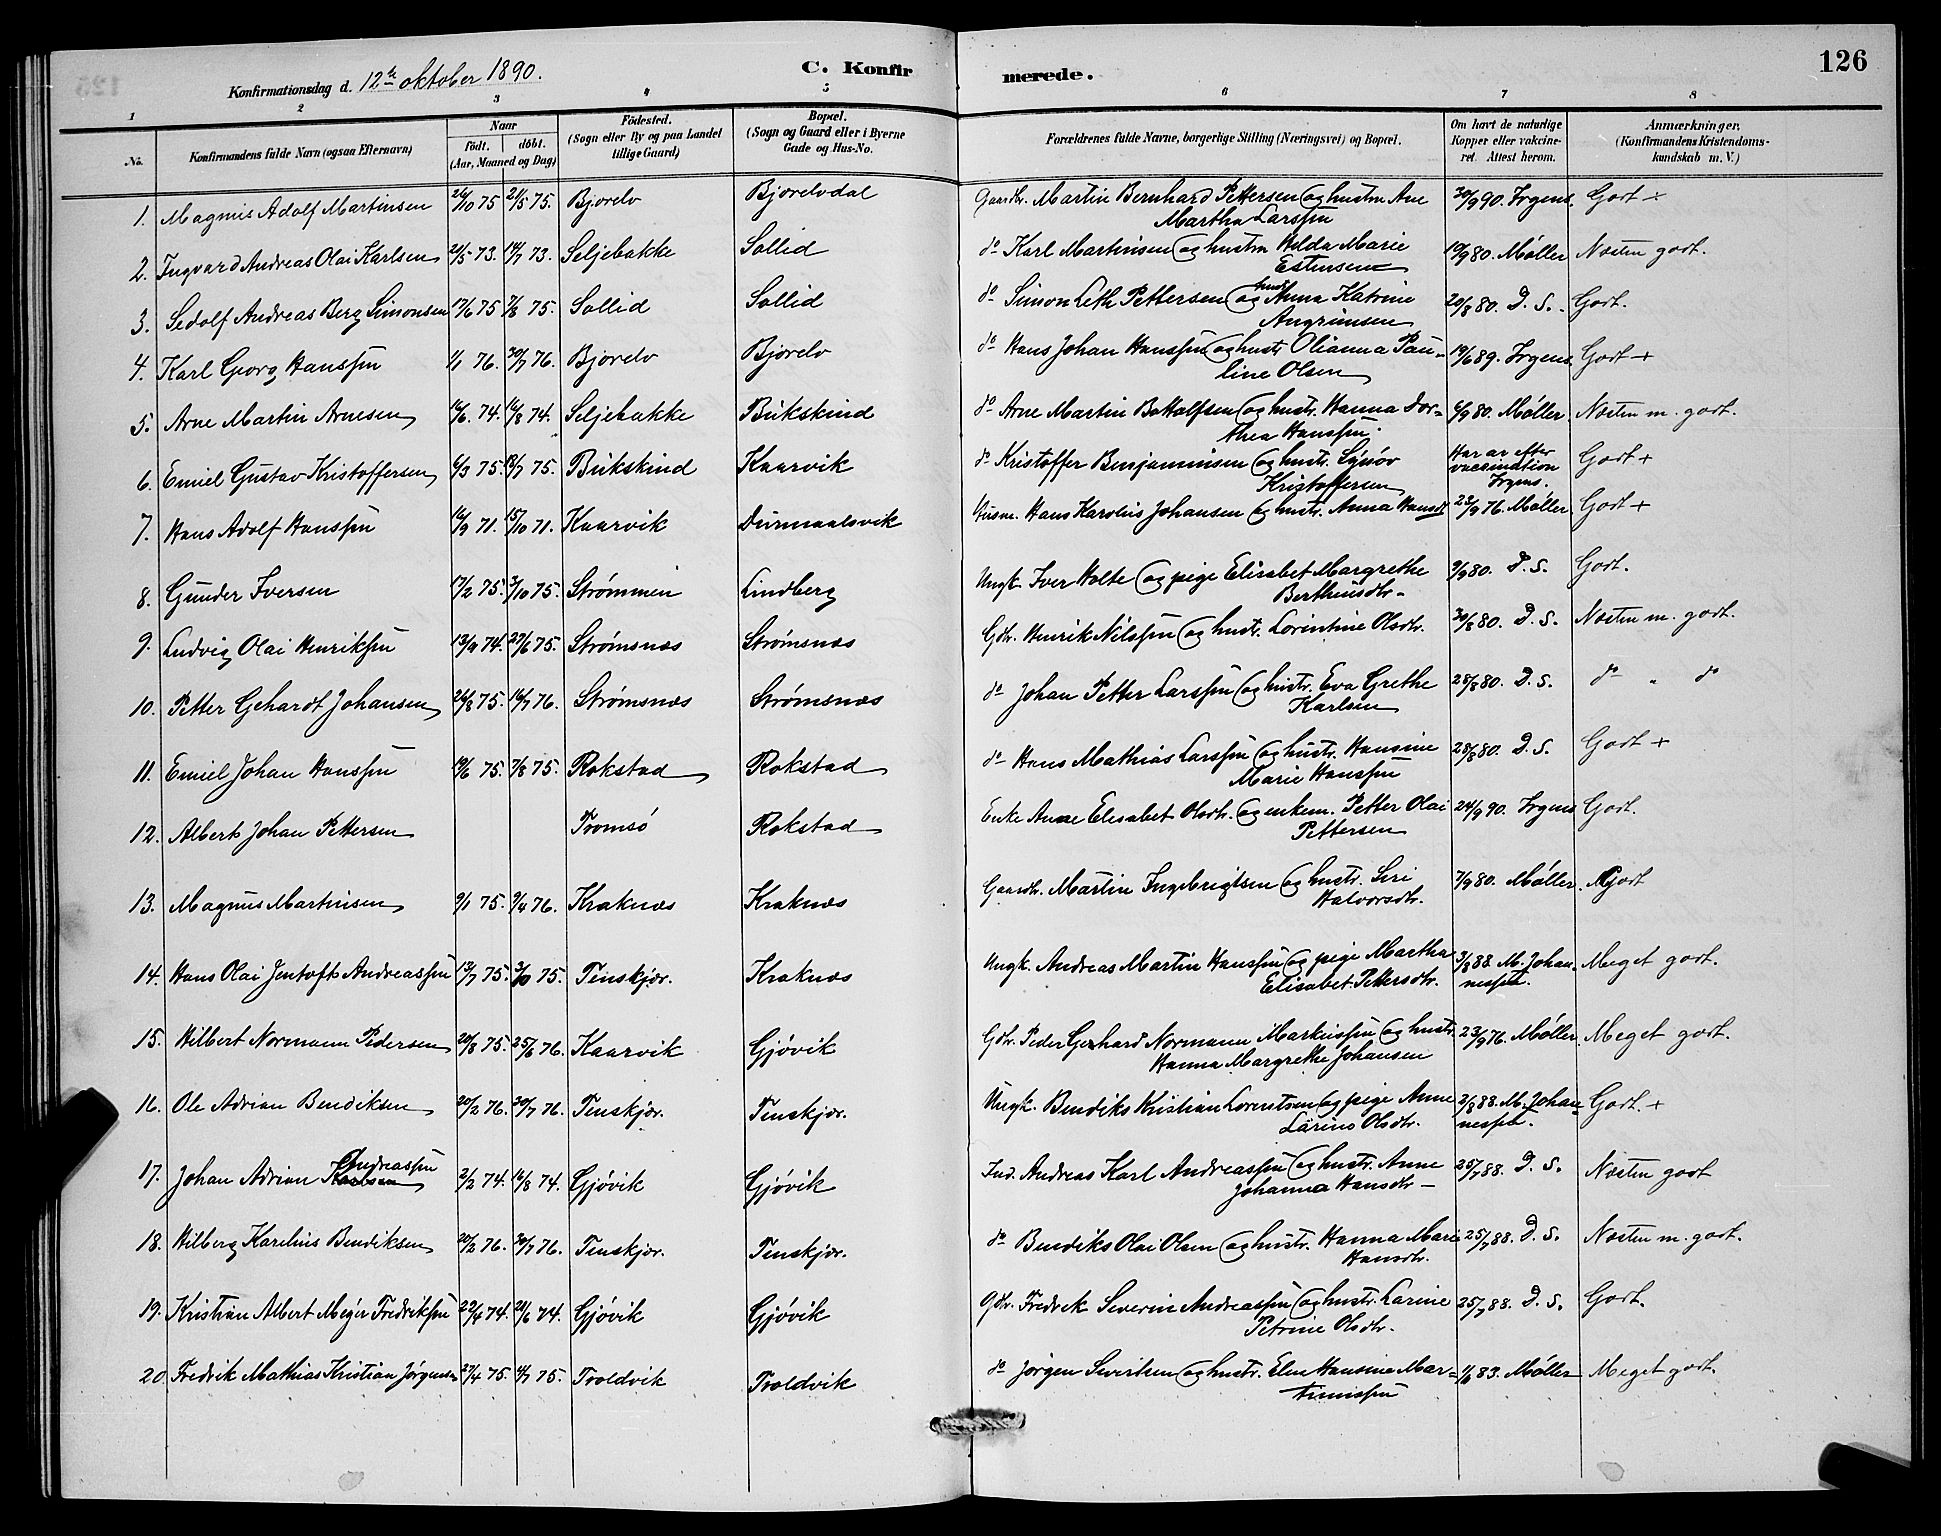 Konfirmationsdag d. 12te oktober 1890.
C. Konfirmerede.
126
1 2 3 4 5 6 7 8
No.
Konfirmandens fulde Navn (ogsaa Efternavn)
Naar
födt. döbt.
(Aar, Maaned og Dag)
Födested.
(Sogn eller By og paa Landet
tillige Gaard)
Bopæl.
(Sogn og Gaard eller i Byerne
Gade og Hus-No.
Forældrenes fulde Navne, borgerlige Stilling (Næringsvei) og Bopæl.
Om havt de naturlige
Kopper eller vakcine-
ret. Attest herom.
Anmærkninger.
(Konfirmandens Kristendoms-
kundskab m. V.)
1. Magnus Adolf Martinsen 26/10 75 21/5 75. Bjorelv Bjorelvdal Gaardbr. Martin Bernhard Pettersen og hustru Ane 30/9 90. Irgens. Godt +
Martha Larssen
2. Ingvard Andreas Olai Karlsen 21/5 73. 14/7 73. Seljebakke Sollid do Karl Martinsen og hustru Hilda Marie 10/9 80. Møller Næsten godt.
Estensen
3. Sedolf Andreas Berg Simonsen 17/6 75 7/8 75. Sollid Sollid do Simon Leth Pettersen og hustr Anna Katrine 20/8 80. D. S. Godt.
Angrimsen
4. Karl Georg Hanssen 1/1 76. 30/7 76. Bjorelv Bjorelv do Hans Johan Hanssen og hustr Olianna Pau- 19/6 89. Irgens. Godt +
line Olsen
5. Arne Martin Arnesen 16/6. 74. 16/8 74. Seljebakke Bukskind do Arne Martin Bottolfsen og hustr. Hanna Dor- 6/9 80. Møller. Næsten m. godt.
thea Hanssen.
6. Emiel Gustav Kristoffersen 6/3 75. 18/7 75. Bukskind Kaarvik do Kristoffer Benjaminsen og hustr. Synöv Har ar efter Godt +
Kristoffersen vaccination
Irgens.
7. Hans Adolf Hanssen 16/9 71. 15/10 71. Kaarvik Durmaalsvik Husm. Hans Karolius Johansen og hustr. Anna Hansdt 23/9 76. Møller. Godt +
8. Gunder Iversen 17/2 75. 3/10 75. Strømmen Lindberg Ungk. Iver Holte og pige Elisabet Margrethe 9/9 80. D. S. Godt.
Berthinsdtr.
9. Ludvig Olai Henriksen 13/9 74. 27/6 75. Strømsnæs Strømsnæs Gdbr. Henrik Nilssen og hustr. Lorintine Olsdtr. 30/8 80. D. S. Næsten m. godt.
10. Petter Gehardt Johansen 26/8 75. 16/7 76. Strømsnæs Strømsnæs do Johan Petter Larssen og hustr. Eva Grethe 28/8 80. D. S. do " do
Karlsen
11. Emiel Johan Hanssen 19/6 75. 7/8 75. Rokstad Rokstad do Hans Mathias Larssen og hustr. Hansine 28/8 80. D. S. Godt +
Marie Hanssen
12. Albert Johan Pettersen Tromsö Rokstad Enke Anne Elesabet Olsdtr. og enkem. Petter Olai 24/9 90. Irgens Godt.
Pettersen
13. Magnus Martinsen 9/1 75. 9/4 76. Kraknæs Kraknæs Gaardbr. Martin Ingebrigtsen og hustr. Siri 7/9 80. Møller. Godt
Halvorsdtr.
14. Hans Olai Jentoft Andreassen 13/7 75. 3/10 75. Tenskjær. Kraknæs Ungk. Andreas Martin Hanssen og pige Martha 3/8 88. M. Johan- Meget godt.
Elisabet Pettersdtr. nessen.
15. Hilbert Normann Pedersen 20/8 75. 25/6 76. Kaarvik Gjövik Gdbr. Peder Gerhard Normann Markussen og hustr. 23/9 76. Møller. Meget godt.
Hanna Margrethe Johansen
16. Ole Adrian Bendiksen 20/2 76. 30/7 76. Tenskjær. Tenskjær. Ungk. Bendiks Kristian Lorentsen og pige Anne 2/8 88. M. Johan- Godt. +
Larine Olsdtr. nessen.
17. Johan Adrian Karlsen Andreassen 2/2 74. 16/8 74. Gjövik Gjövik Ind. Andreas Karl Andreassen og hustr. Anne 25/7 88. D. S. Næsten godt
Johanna Hansdtr
18. Hilberg Karelius Bendiksen 20/2 76. 30/7 76. Tenskjær. Tenskjær. do Bendiks Olai Olsen og hustr. Hanna Marie 25/7 88. D. S. Næsten m. godt.
Hansdtr.
19. Kristian Albert Mejer Fredriksen 22/4 74. 21/6 74. Gjövik Gjövik Gdbr. Fredrek Severin Andreassen og hustr. Larine 25/7 88. D. S. Godt.
Petrine Olsdtr.
20 Fredrik Mathias Kristian Jørgensen 27/4 75. 4/7 75. Troldvik Troldvik do Jörgen Sivertsen og hustr. Elen Hansine Mar- 1/6 83. Møller Meget godt.
tinussen